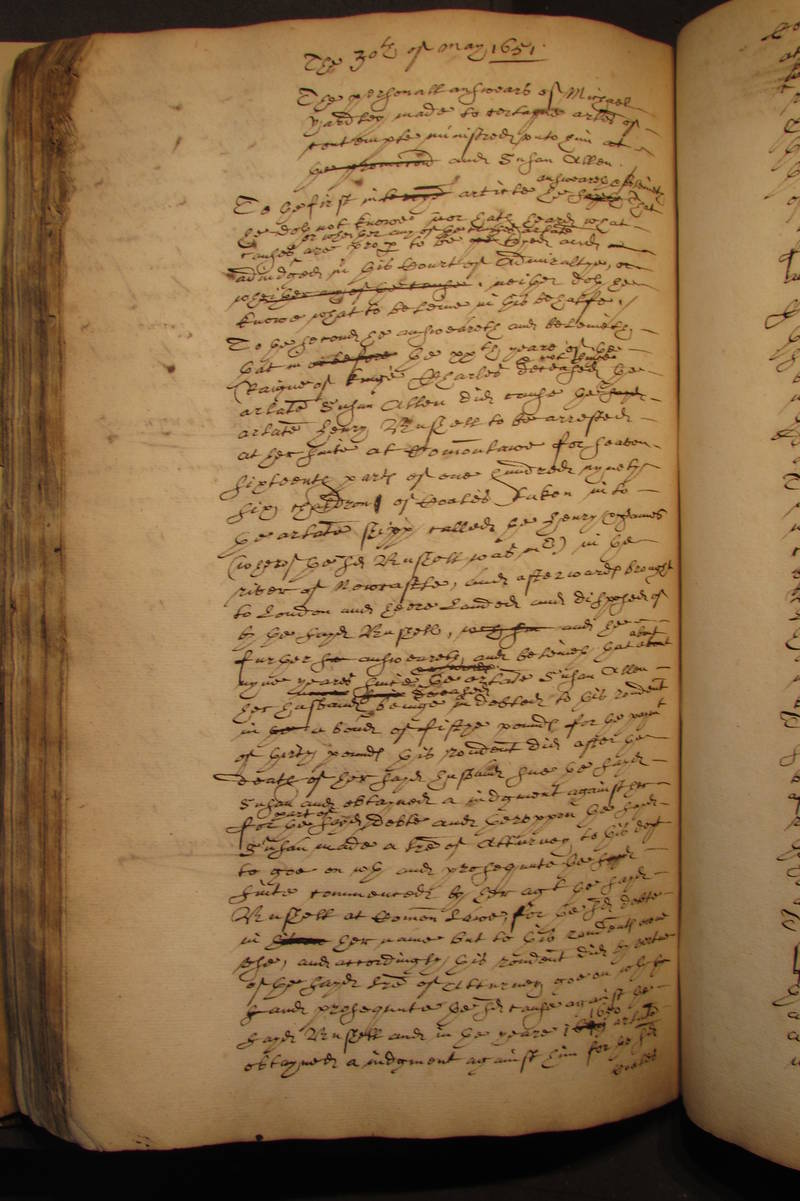 The 30th of May 1651.
The personall answears of Michael
Yardley made to certayne artles of
contempte ministred unto him at
the promotion and Susan Allen.
answeareth & beleiveth
To the first interrye article he sayeth that
he doth not knowe nor hath heard what
or whether any of the causes artlate
causes are propr to be tryed and
adiudged in this Court of Admiraltye, or
whether any of the cause. neither doth he
knowe what to beleive in his behalfe./
To the second he answeareth and beleiveth
that in or before the xxth yeare of the
Raigne of Kinge Charles deceased the
artlate Susan Allen did cause the sayd
artlate Henry Russell to be arrested
at her suite at Comon lawe for seaven
sixteenth parts of one hundred nynety
six chaldron of Coales taken in to
the artlate shipp called the Henry & James
(whereof the sd Russell was mr) in the
river of Newcastle, and afterwards brought
to London and there landed and disposed of
by the sayd Russell, and the
further he answeareth and beleiveth that about
nyne yeares since the artlate Susan Allen
her husband beinge indebted to this rendent
in the a bond of fiftye pounds for the paymt
of thirty pounds this rendent did after the
death of her sayd husband sue the sayd
Susan and obtayned a iudgment against her
part of
for the sayd debte and thereuppon the sayd
Susan made a lre of Atturney to this dept
to goe on wth and prosequute the sayd
suite commenced by her agt the sayd
Russell at Comon Lawe, for the sd debte
in her name but to this rendents owne
use, and accordingly this rendent did by vertue
of the sayd lre of Atturney goe on wth
and prosequute the sd cause against the
1650
sayd Russell and in the yeare artlate
obtayned a iudgment against him for the sd
coales